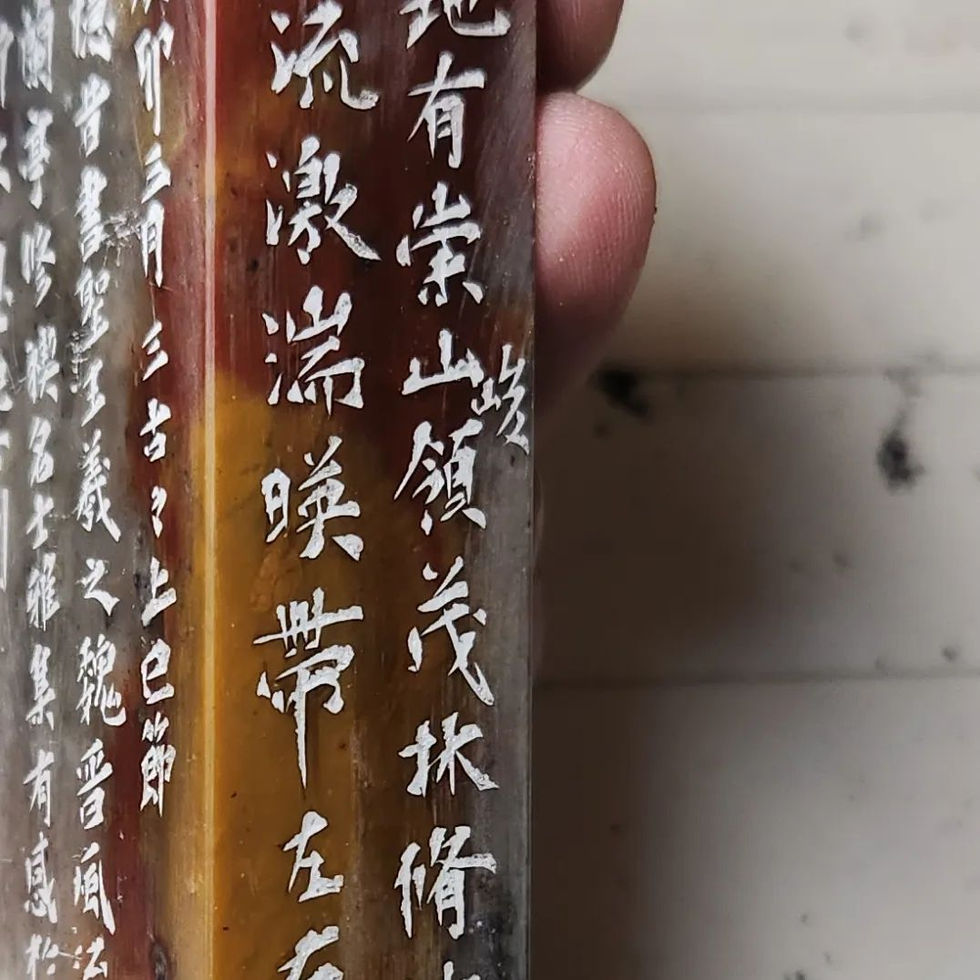 地有崇山峻領茂林脩
流激湍暎帶左右
卯三月三古之上巳節
憶昔書聖王羲之魏晉風法
蘭亭修禊名士雅集有感於